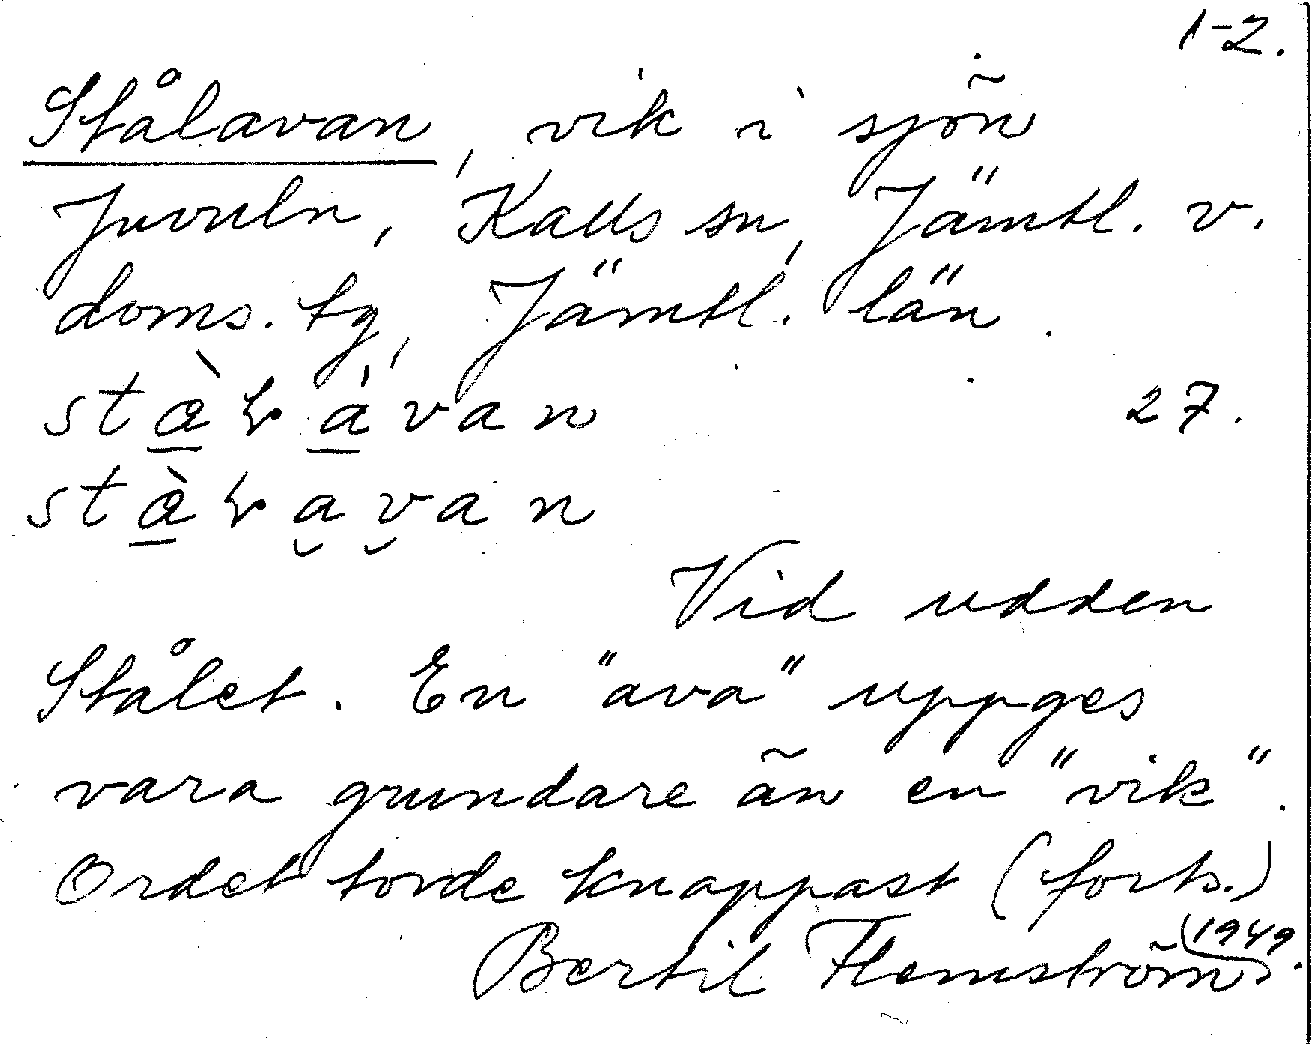 1-2.
Stålavan, vik i sjön
Juvuln, Kalls sn, Jämtl. v.
doms. tg, Jämtl. län.
27.
Vid udden
Stålet. En "ava" uppges
vara grundare än en "vik".
Ordet torde knappast (forts.)
Bertil Flemström (1949).